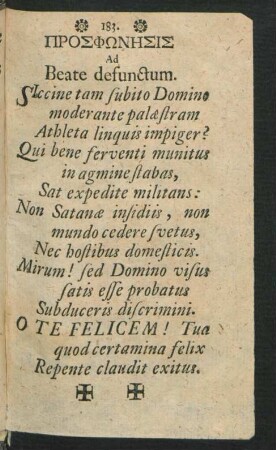 183.
ΠΡΟΣΦΩΝΗΣΙΣ
Ad
Beate defunctum.
SIccine tam ſubito Domino
moderante palæſtram
Athleta linquis impiger?
Qui bene ferventi munitus
in agmine ſtabas,
Sat expedite militans:
Non Satanæ inſidiis, non
mundo cedere ſvetus,
Nec hoſtibus domeſticis.
Mirum! ſed Domino viſus
ſatis eſſe probatus
Subduceris diſcrimini.
O TE FELICEM! Tua
quod certamina felix
Repente claudit exitus.